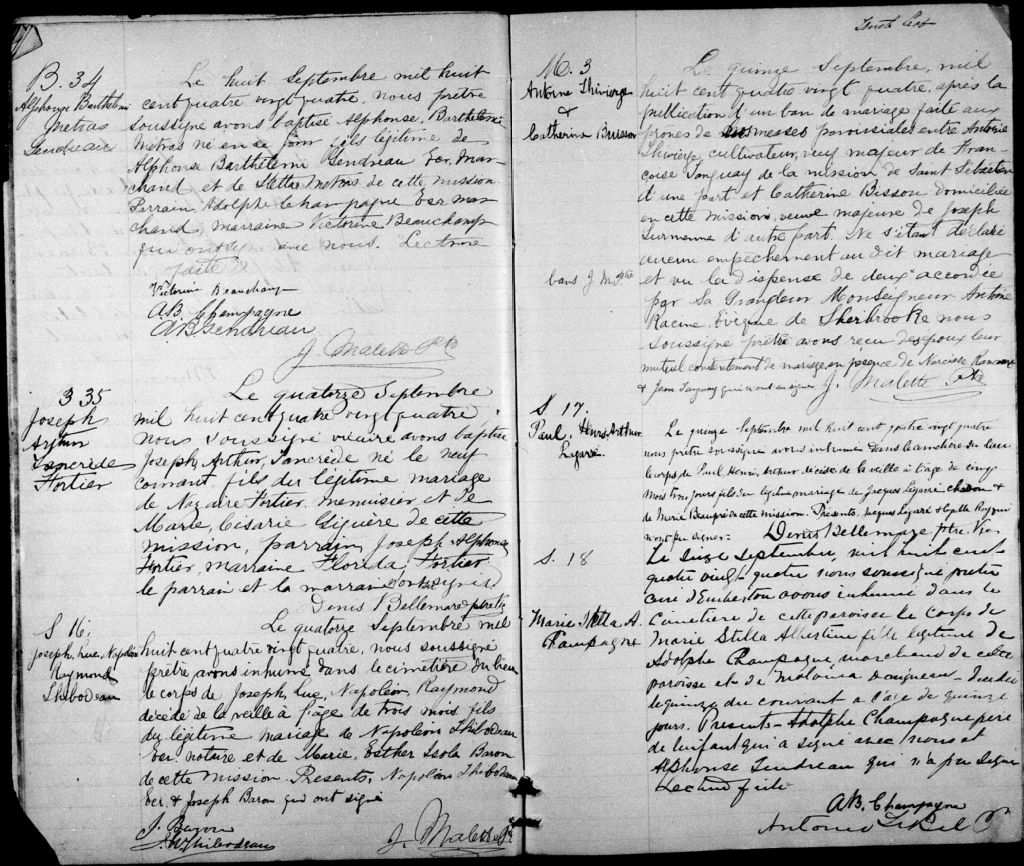 B. 34
Alphonse Barthélemi
Métras
Gendreau
Le huit Septembre mil huit
cent quatre vingt quatre, nous prêtre
soussigné avons baptisé Alphonse, Barthelemi
Métras né en ce jour fils légitime de
Alphonse Barthélemi Gendreau Ecr, mar-
chand et de Stella Métras de cette mission
Parrain, Adolphe Champagne Ecr mar
chand, marraine Victorine Beauchamp
qui ont signé avec nous. Lecture
faite
Victorine Beauchamp
A.B. Champagne
A.B. Gendreau
J. Malette Ptr
B 35
Joseph
Arthur
Tancrède
Fortier
Le quatorze Septembre
mil huit cent quatre vingt quatre
nous soussigné vicaire avons baptisé
Joseph, Arthur, Tancrède né le neuf
courant fils du légitime mariage
de Nazaire Fortier, menuisier et de
Marie, Césarie Giguère de cette
mission, parrain, Joseph, Alphonse
Fortier, marraine Florida Fortier
le parrain et la marraine ont signé
Denis Bellemare ptre
S 16.
Joseph, Luc, Napoléon
Raymond
Thibodeau
Le quatorze Septembre mil
huit cent quatre vingt quatre, nous soussigné
prêtre avons inhumé dans le cimetière du lieu
le corps de Joseph, Luc, Napoléon, Raymond
décédé de la veille à l'âge de trois mois fils
du légitime mariage de Napoléon Thibodeau
Ecr. notaire et de Marie, Esther Isola Baron
de cette mission. Présents, Napoléon Thibodeau
Ecr, & Joseph Baron qui ont signé
J. Baron
Thibodeau
J. Malette Ptr
M. 3
Antoine Thivierge
&
Catherine Bisson
Le quinze Septembre, mil
huit cent quatre vingt quatre, après la
publication d'un ban de mariage faite aux
prônes de nos messes paroissiales entre Antoine
Thivierge, cultivateur, veuf majeur de Fran-
çoise Tanguay de la mission de Saint Sébastien
d'une part et Catherine Bisson domiciliée
en cette mission, veuve majeure de Joseph
d'autre part. Ne s'étant déclaré
aucun empêchement au dit mariage
bans J M Ptre
et vu la dispense de deux accordée
par Sa Grandeur Monseigneur Antoine
Racine, Evêque de Sherbrooke nous
soussigné prêtre avons reçu des époux leur
mutuel consentement de mariage, en présence de Narcisse
& Jean Tanguay qui n'ont su signer J. Malette Ptr
S 17.
Paul, Henri, Arthur
Légaré
Le quinze Septembre mil huit cent quatre vingt quatre
nous prêtre soussigné avons inhumé dans le cimetière du lieu
le corps de Paul Henri, Arthur décédé de la veille à l'âge de cinq
mois trois jours fils du légitime mariage de Jacques Légaré &
de Marie Beaupré de cette mission. Présents, Jacques Légaré &
n'ont pu signer. Denis Bellemare ptre Vic
S. 18
Marie Stella A.
Champagne
Le Seize Septembre, mil huit cent
quatre vingt quatre nous soussigné prêtre
curé d'Emberton avons inhumé dans le
Cimetière de cette paroisse le corps de
Marie Stella Albertine fille légitime de
Adolphe Champagne, marchand de cette
paroisse et de Malvina
le quinze du courant a l'age de quinze
jours. Présents Adolphe Champagne père
de l'enfant qui a signé avec nous et
Alphonse Gendreau qui n'a pu signer
Lecture faite
A.B. Champagne
Antonio